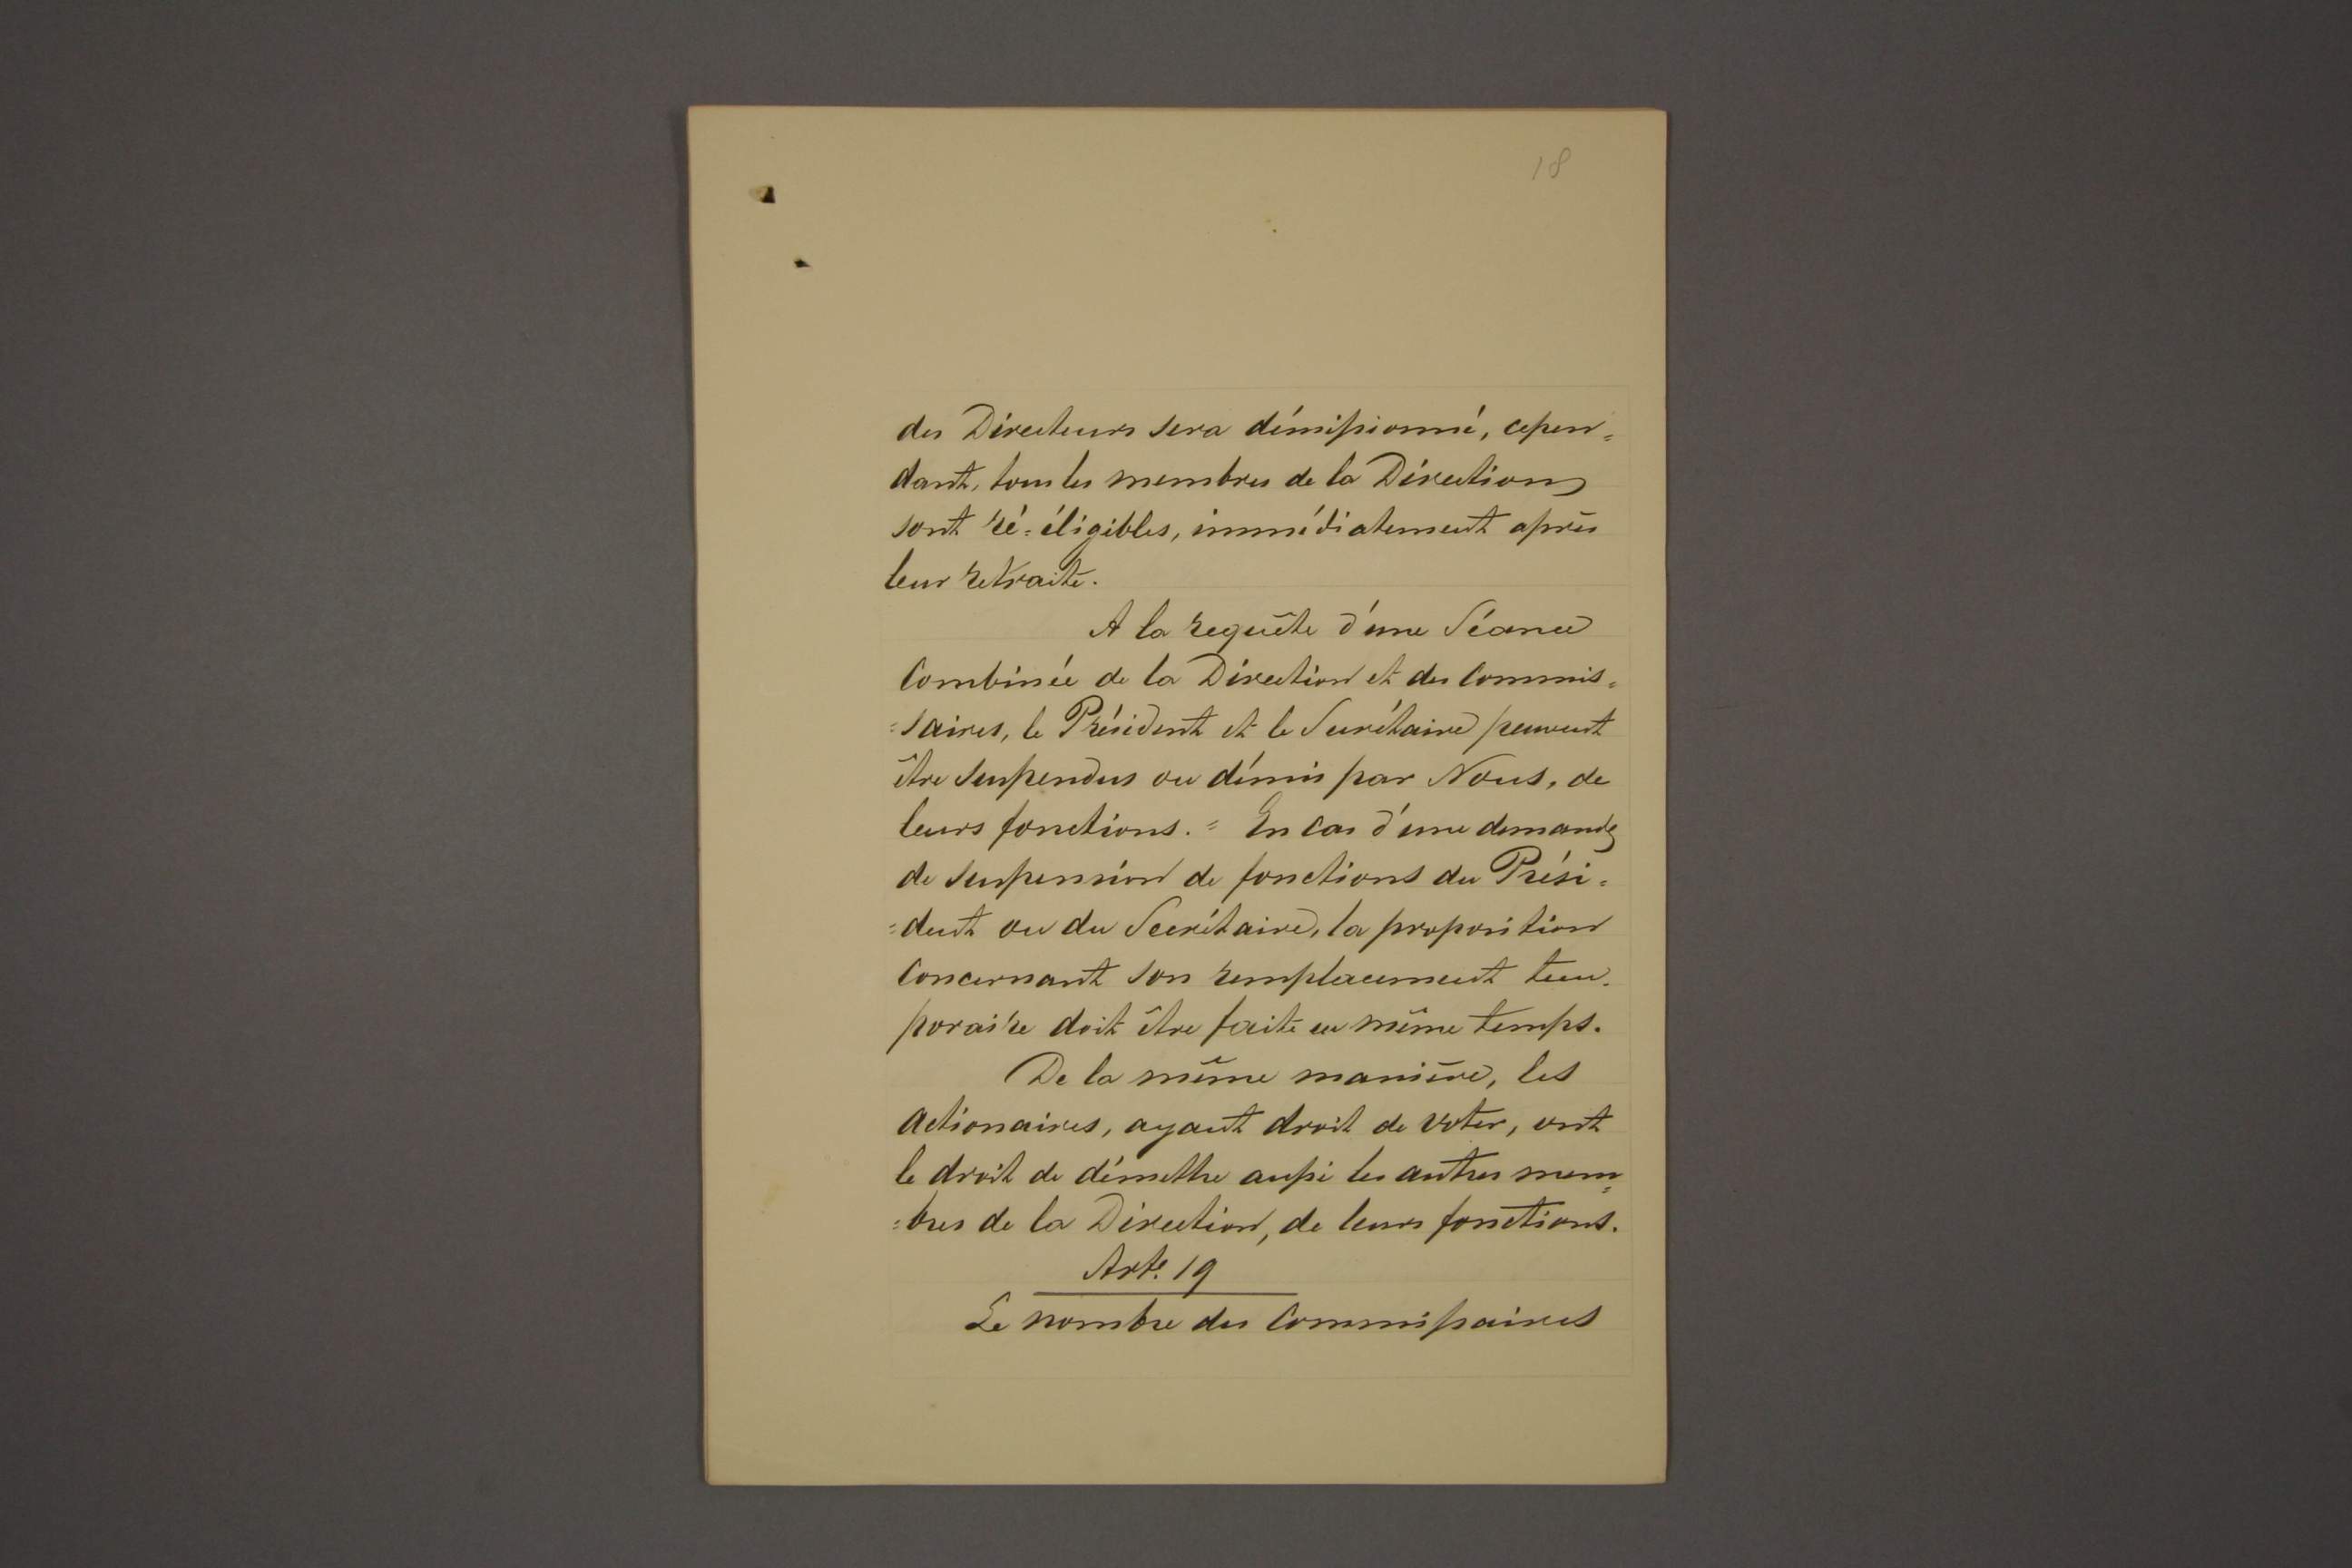 18
des Directeurs sera démissionné, cepen=
dant, tous les membres de la Direction
sont ré=éligibles, immédiatement après
leur retraite.
A la requête d'une Séance
Combinée de la Direction et des Commis=
=saires, le Président et le Secrétaire peuvent
être suspendus ou démis par Nous, de
leurs fonctions. = En cas d'une demande
de suspension de fonctions du Prési=
=dent ou du Secrétaire, la proposition
Concernant son remplacement tem.
poraire doit être faite en même temps.
De la même manière, les
actionaires, ayant droit de voter, ont
le droit de démettre aussi les autres mem=
=bres de la Direction, de leurs fonctions.
Arte. 19
Le nombre des Commissaires